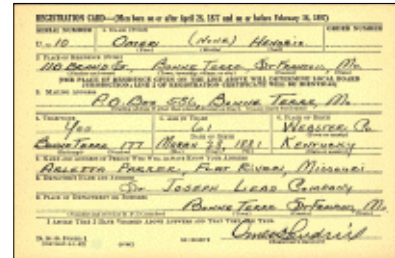 REGISTRATION CARD—(Men born on or after April 28, 1877 and on or before February 16, 1897)
SERIAL NUMBER 1. NAME (Print) ORDER NUMBER
U- 10 Omeri (None) Hendrix
2. PLACE OF RESIDENCE (Print)
St., Bonne Terre St Francois, Mo.
[THE PLACE OF RESIDENCE GIVEN ON THE LINE ABOVE WILL DETERMINE LOCAL BOARD
JURISDICTION; LINE 2 OF REGISTRATION CERTIFICATE WILL BE IDENTICAL]
3. MAILING ADDRESS
P.O. Box 556, Bonne Terre, Mo.
4. TELEPHONE 5. AGE IN YEARS 6. PLACE OF BIRTH
Yes 61 Webster Co.
DATE OF BIRTH
Bonne Terre 177 28, 1881 Kentucky
7. NAME AND ADDRESS OF PERSON WHO WILL ALWAYS KNOW YOUR ADDRESS
Arletta Parker, Flat River, Missouri
8. EMPLOYER'S NAME AND ADDRESS
St. Joseph Lead Company
9. PLACE OF EMPLOYMENT OR BUSINESS
Bonne Terre St Francois, Mo.
I AFFIRM THAT I HAVE VERIFIED ABOVE ANSWERS AND THAT THEY ARE TRUE.
D. S. S. Form 1